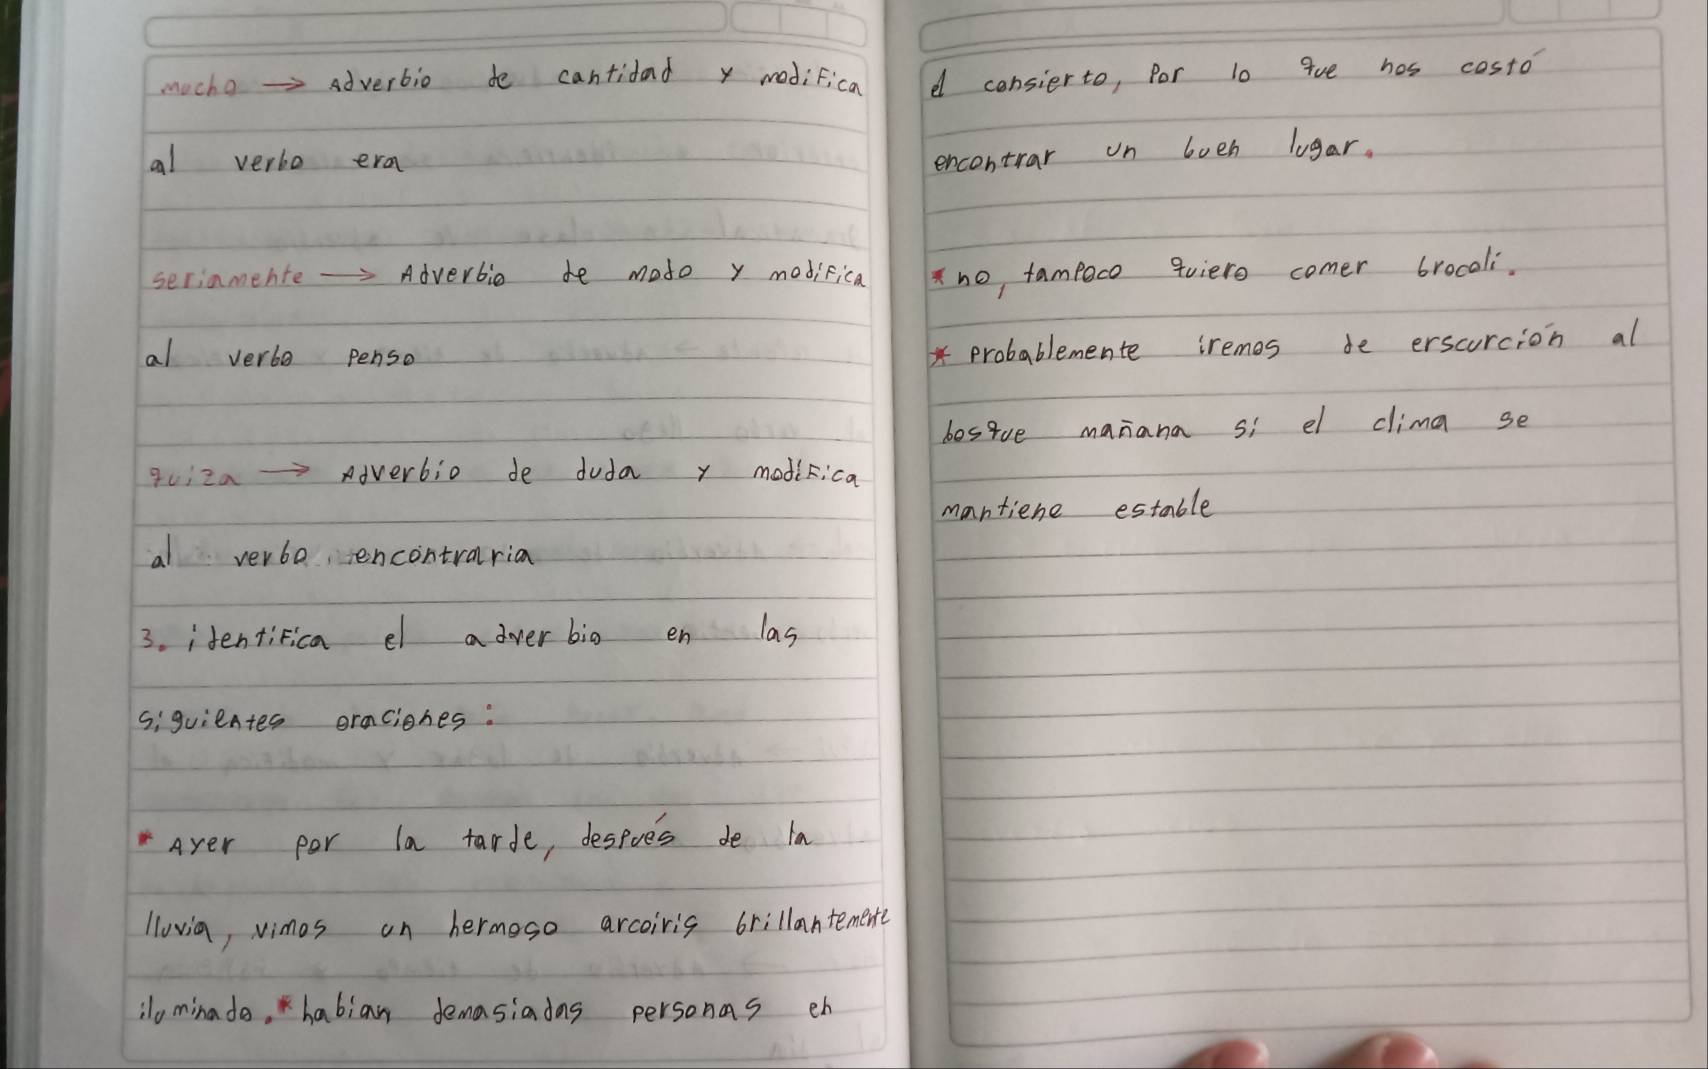 mucho → Adverbio de cantidad y modifica
al verbo era
seriamente → Adverbio de modo y modifica
al verbo penso
quiza → Adverbio de duda y modifica
al verbo encontraria
3. identifica el adverbio en las
siguientes oraciones:
* Ayer por la tarde, después de la
lluvia, vimos un hermoso arcoiris brillantemente
iluminado. * habian demasiadas personas en
el consierto, por lo que nos costó
encontrar un buen lugar.
* no, tampoco quiero comer brocoli.
* probablemente iremos de erscurción al
bosque mañana si el clima se
mantiene estable